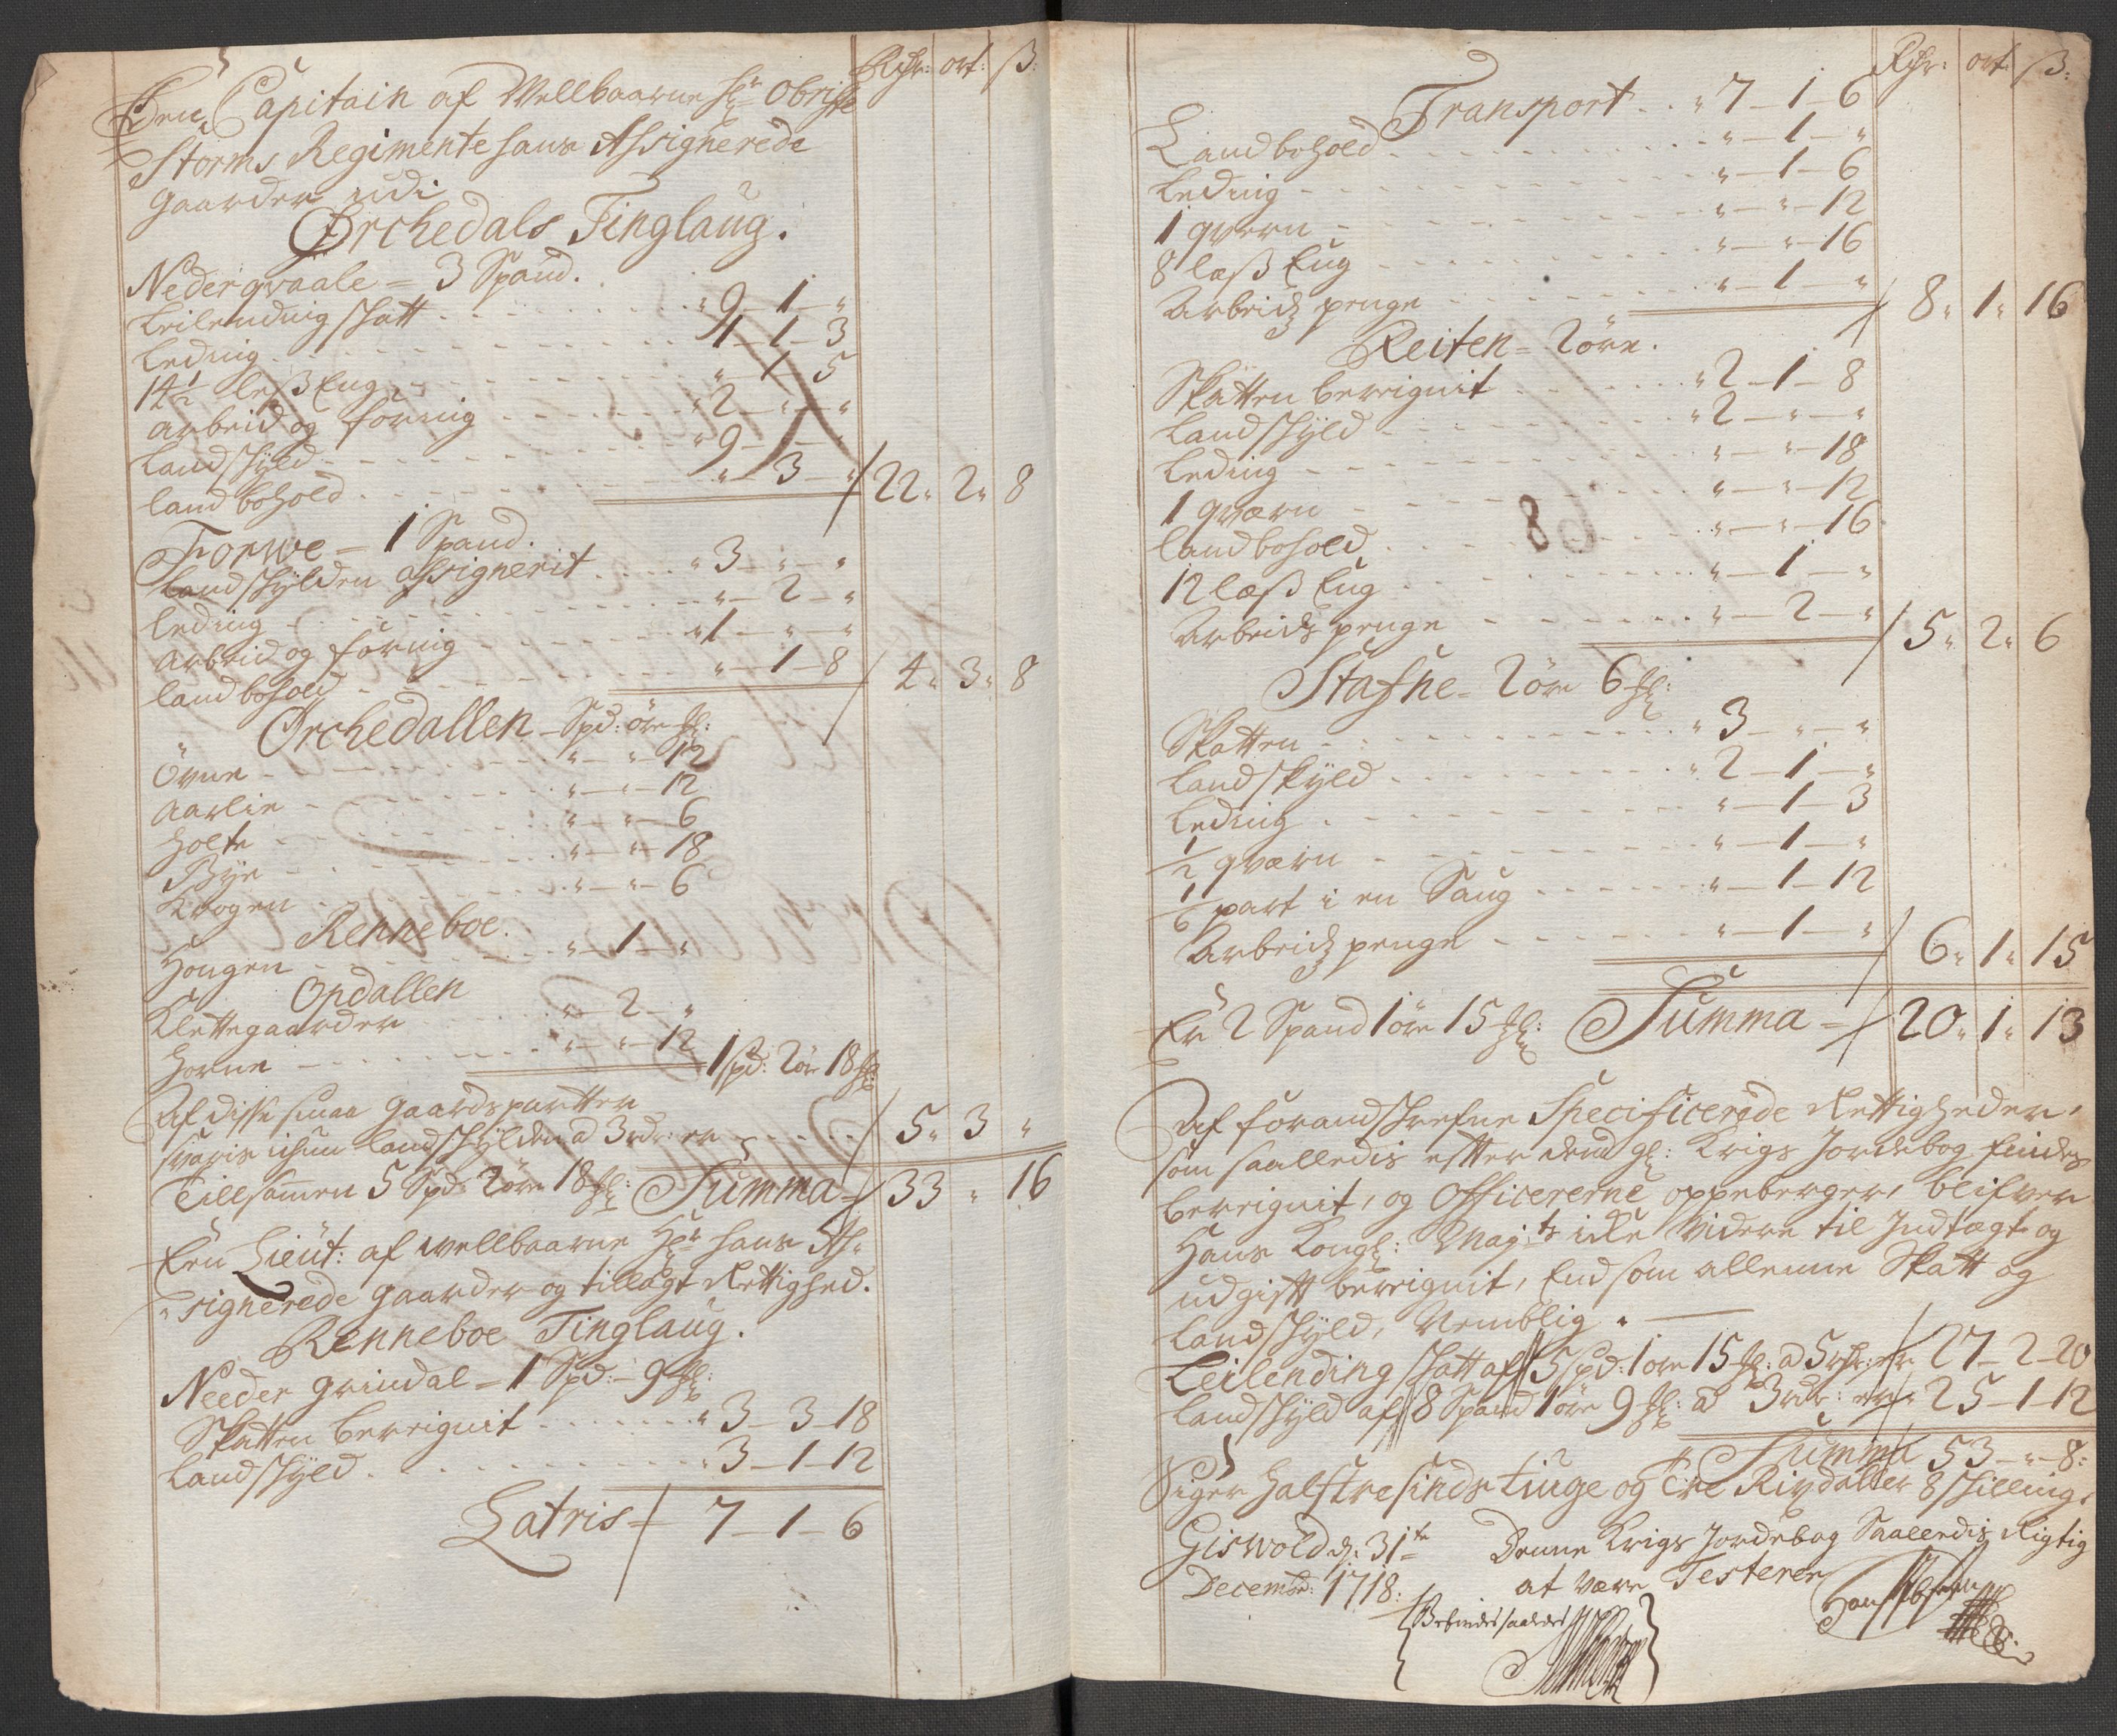 Rdr: ort: ß:
Een Capitain af Wellbaarne Hr Obriste
Storms Regimente hans Assignerede
gaarder udi
Orchedals Tinglaug.
Neder qvaale = 3 Spand.
Leilending skatt " 9 - 1 - "
Leding 1 - 1 - 3
14½ læß Eng " - 1 - 5
arbeid og föring " 2 - " - "
Landskÿld " 9 - " - "
landbohold " - 3 - " / 22 " 2 " 8
Torwe = 1 Spand.
Landskÿlden assignerit " 3 - " - "
leding " - 2 - "
arbeid og föring " 1 - " - "
landbohold " - 1 - 8 / 4 " 3 " 8
Orchedallen Spd: öre Ml:
Övne " - " - 12
Aarlie " - " - 12
holte " - " - 6
Bÿe " - " - 18
Krogen " - " - 6
Renneboe.
Hougen " - 1 - "
Opdallen
Klettegaarden " - 2 - "
horne " - " - 12
1 spd: 2 ör 18 Ml:
Af disse smaa gaardsparter
svaris ichun landskÿlden a 3 rdr: er / 5 " 3 "
Tillsamen 5 Spd 2 öre 18 Ml: Summa / 33 " 16
Een Lieut: af wellbaarne Hr hans As-
signerede gaarder og tillagt Rettighed.
Renneboe Tinglaug.
Neder grindal = 1 Spd: 9 Ml:
Skatten bereignit " 3 - 3 - 18
Landskÿld " 3 - 1 - 12
Latris / 7 - 1 - 6
Rdr: ort ß:
Transport " 7 - 1 - 6
Landbohold " - 1 - "
Leding " - 1 - 6
1 qvern " - " - 12
8 læß Eng " - " - 16
Arbeids penge " - 1 - " / 8 " 1 " 16
Reiten = 2 öre.
Skatten bereignit " 2 - 1 - 8
Landskÿld " 2 - " - "
Leding " - " - 18
1 qværn " - " - 12
landbohold " - " - 16
12 læß Eng " - 1 - "
Arbeids penge " - 2 - " / 5 " 2 " 6
Stafne = 2 öre 6 Ml:
Skatten " 3 - " - "
Landskÿld " 2 - 1 - "
Leding " - 1 - 3
½ qværn " - 1 - "
1/6 part i en Saug " - 1 - 12
Arbeids penge " - 1 - " / 6 " 1 " 15
Er 2 Spand 1 öre 15 Ml: Summa / 20 " 1 " 13
Af forandskrefne Specificerede Rettigheder,
som saalledis efter dend gl: Krigs Jordebog findes
bereignit, og Officererne oppeberger, blifver
Hans Kongl: Mayts icke Videre til Indtægt og
udgift bereignit, End som allenne Skatt og
Landskÿld, Nemblig.
Leilending skatt af 5 spd: 1 öre 15 Ml: a 5 rdr: er / 27 - 2 - 20
landskÿld af 8 Spand 1 öre 9 Ml: a 3 rdr: er / 25 - 1 - 12
Summa 53 - " - 8:
Siger halftresinds tiuge og tre Rixdaller 8 skilling.
Giswold d: 31te Denne Krigs Jordebog Saaledis Rigtig
Decembr: 1718: at være Testerer